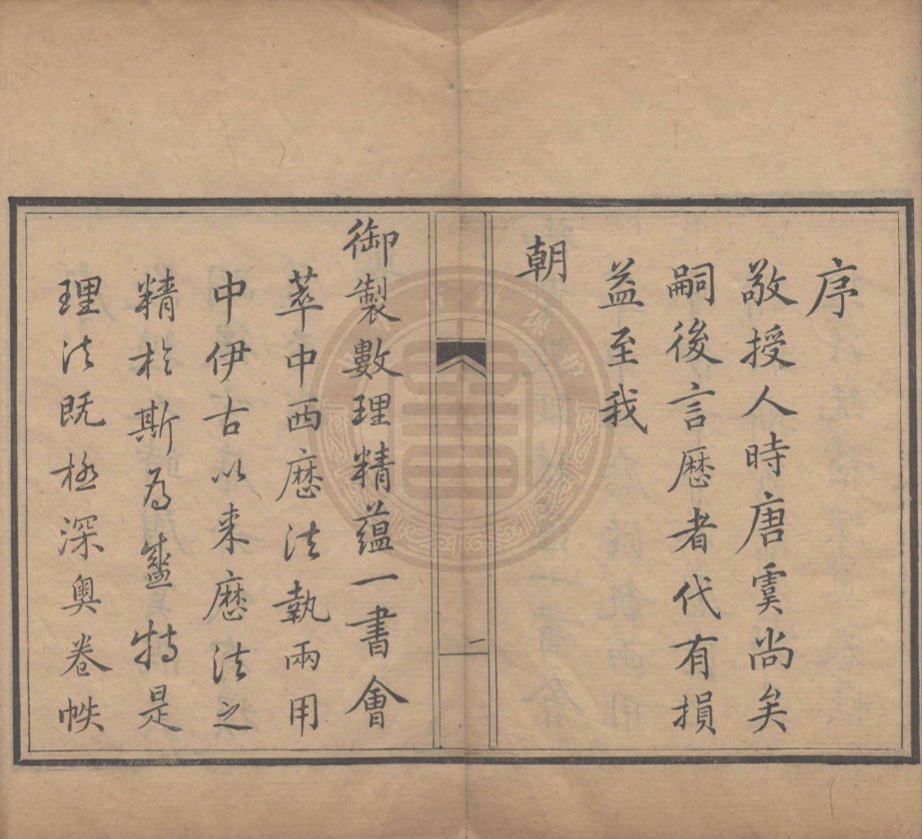 序
敬授人時唐虞尚矣
嗣後言厯者代有損
益至我
朝
御製數理精蘊一書會
萃中西厯法執兩用
中伊古以来厯法之
精於斯為盛特是
理法既極深奧卷帙
二